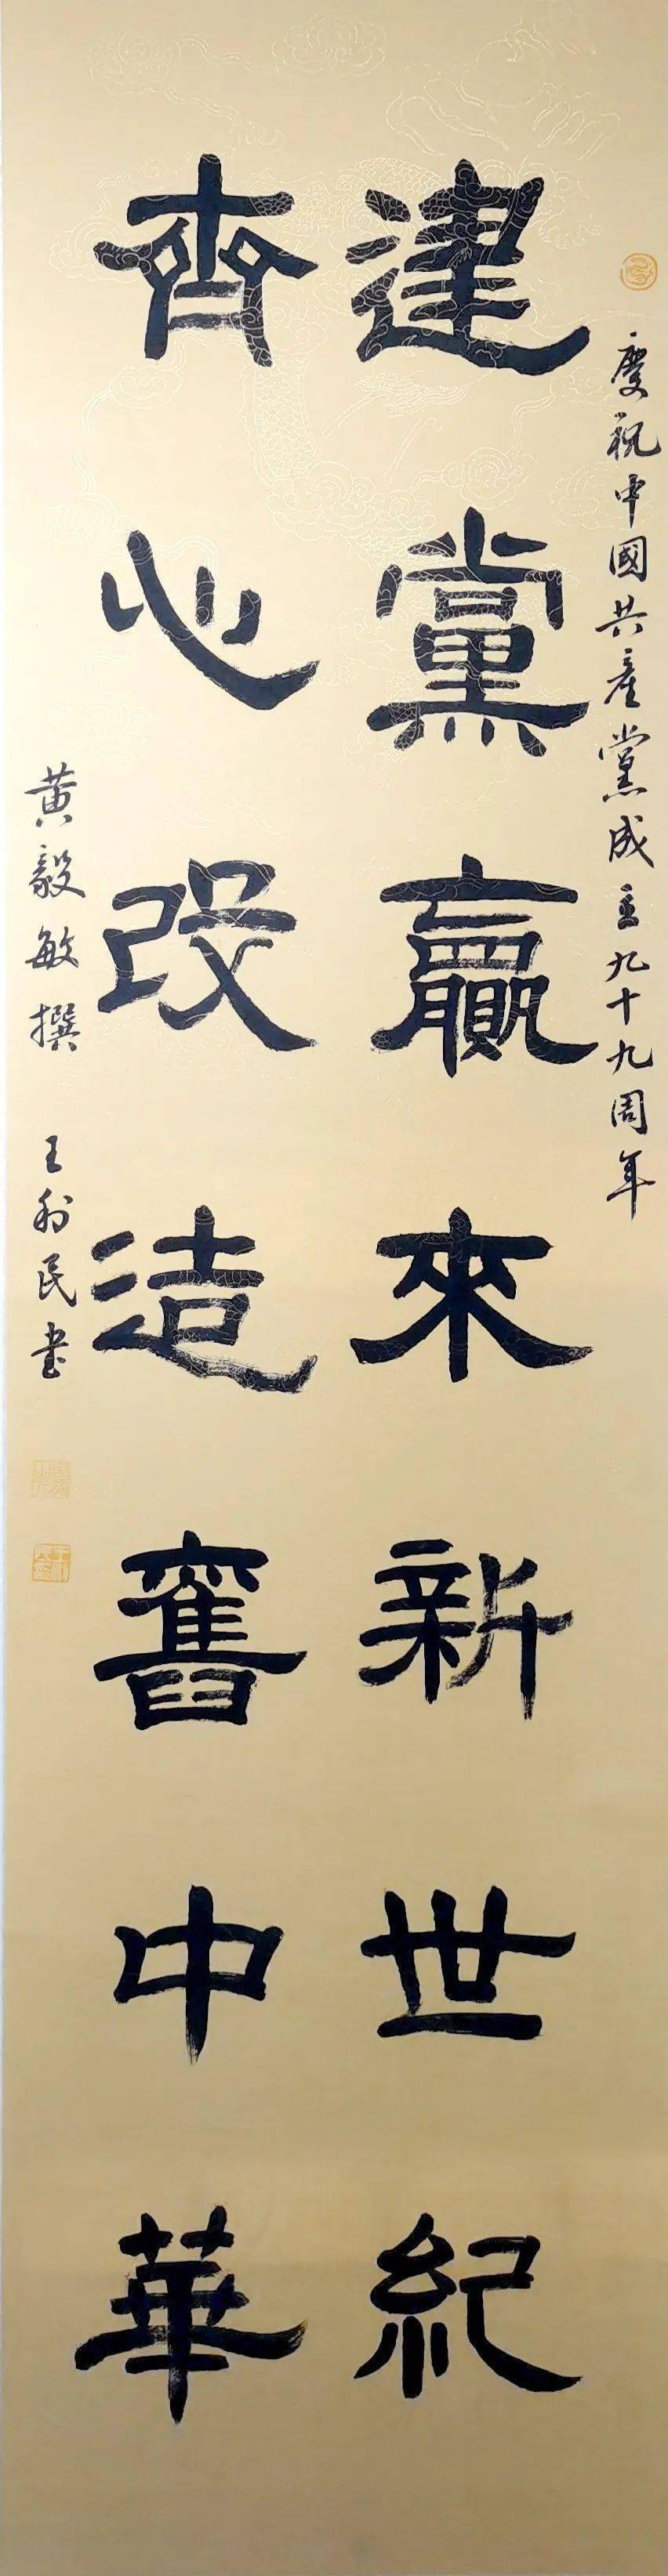 慶祝中國共產黨成立九十九周年
建黨贏來新世紀
齊心改造舊中華
黄毅敏撰 王利民書